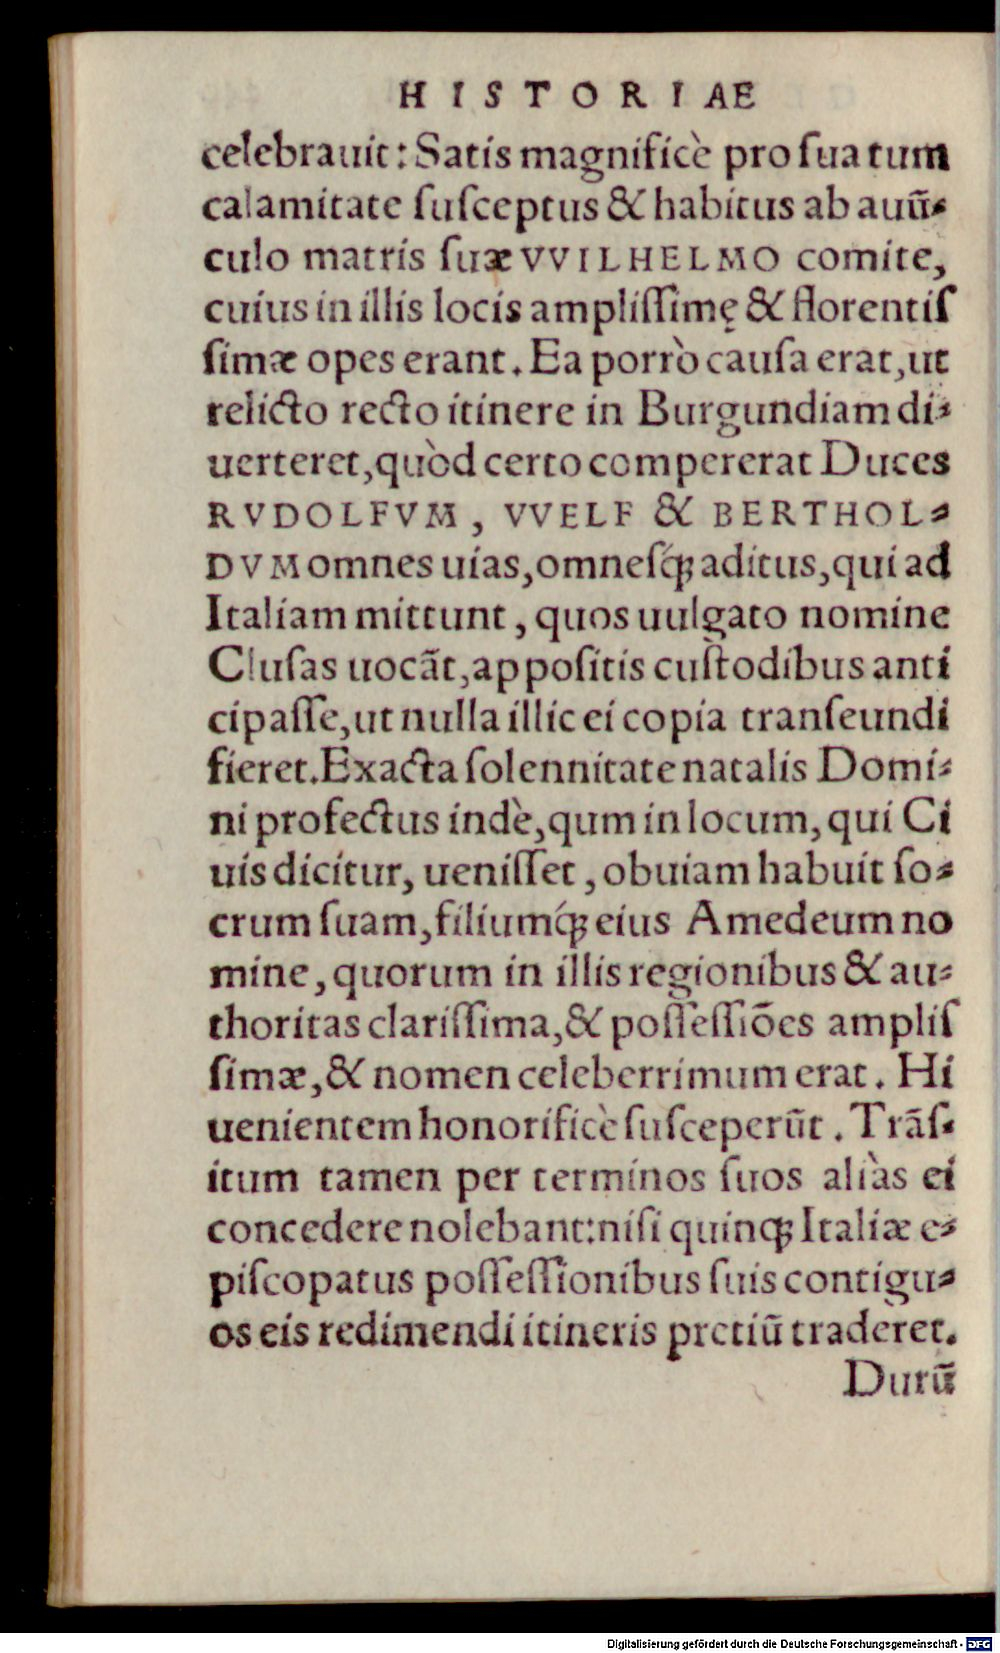 HISTORIAE
celebrauit: Satis magnificè pro ſua tum
calamitate ſuſceptus & habitus ab auũ⸗
culo matris ſuæ VVILHELMO comite,
cuius in illis locis ampliſſimę & florentiſ
ſimæ opes erant. Ea porrò cauſa erat, ut
relicto recto itinere in Burgundiam di⸗
uerteret, quòd certo compererat Duces
RVDOLFVM, VVELF & BERTHOL⸗
DVM omnes uias, omneſq́ꝫ aditus, qui ad
Italiam mittunt, quos uulgato nomine
Cluſas uocãt, appoſitis cuſtodibus anti
cipaſſe, ut nulla illic ei copia tranſeundi
fieret. Exacta ſolennitate natalis Domi⸗
ni profectus indè, qum in locum, qui Ci
uis dicitur, ueniſſet, obuiam habuit ſo⸗
crum ſuam, filiumq́ꝫ eius Amedeum no
mine, quorum in illis regionibus & au⸗
thoritas clariſſima, & poſſeſſiões ampliſ
ſimæ, & nomen celeberrimum erat. Hi
uenientem honorificè ſuſceperũt. Trãſ⸗
itum tamen per terminos ſuos aliàs ei
concedere nolebant: niſi quinqꝫ Italiæ e⸗
piſcopatus poſſeſſionibus ſuis contigu⸗
os eis redimendi itineris pretiũ traderet.
Durũ
Digitalisierung gefördert durch die Deutsche Forschungsgemeinschaft - DFG